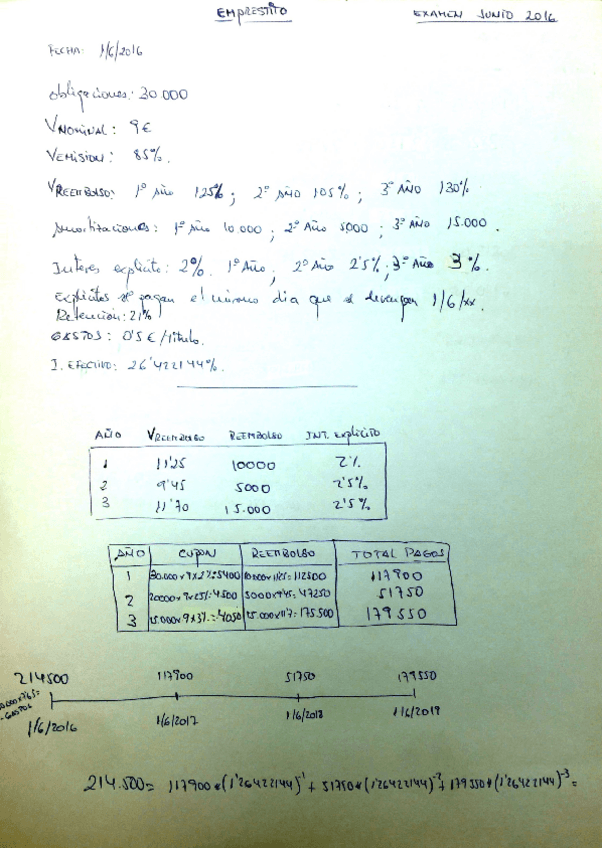 EMPRESTITO EXAMEN JUNIO 2016
FECHA: 1/6/2016
obligaciones: 30.000
VNOMINAL: 9€
VEMISION: 85%.
VREEMBOLSO: 1º AÑO 125%; 2º AÑO 105%; 3º AÑO 130%
Amortizaciones: 1º Año 10.000; 2º Año 5000; 3º AÑO 15.000.
Interes explicito: 2% 1º Año; 2º Año 2'5%; 3º Año 3%.
Explicitos se pagan el mismo dia que se devengan 1/6/xx.
Retencion: 21%
GASTOS: 0'5€/titulo.
I. EFECTIVO: 26'422144%.
AÑO VREEMBOLSO REEMBOLSO INT. Explicito
1 11'25 10000 2%
2 9'45 5000 2'5%
3 11'70 15.000 2'5%
AÑO CUPON REEMBOLSO TOTAL PAGOS
1 30.000x9x2%=5400 10000x11'25=112500 117900
2 20000x9x2'5%=4500 5000x9'45=47250 51750
3 15.000x9x3%=4050 15.000x11'7=175.500 179550
214500 117900 51750 179550
-GASTOS
1/6/2016 1/6/2017 1/6/2018 1/6/2019
214.500= 117900*(1'26422144)-1 + 51750*(1'26422144)-2 + 179550*(1'26422144)-3 =